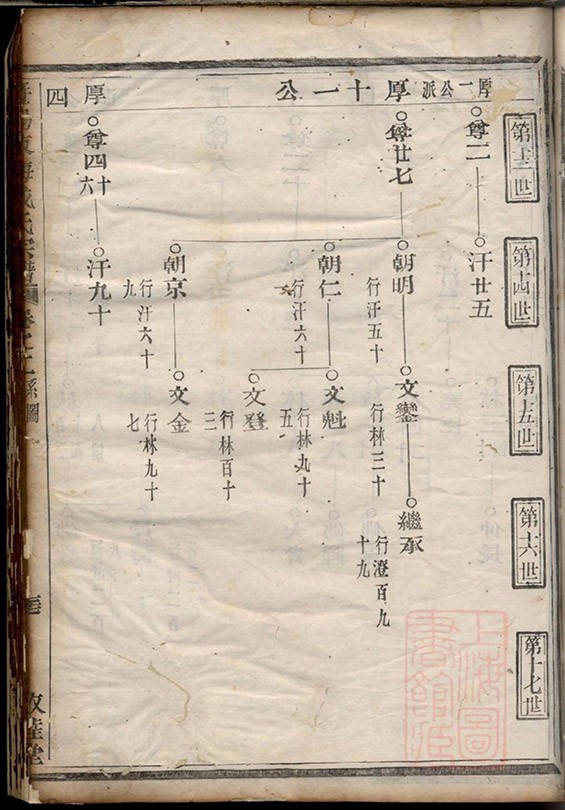 第十三世
第十四世
第十五世
第十六世
第十七世
厚一公派
厚十一公
厚四
尊二
汗廿五
尊廿七
朝明
行汗五十
文鑾
行林三十
繼承
行澄百九十九
朝仁
行汗六十
文魁
行林九十五
文登
行林百十三
朝京
行汗六十九
文金
行林九十七
尊四十六
汗九十
氏宗譜
系圖
敦睦堂
上海圖書館藏